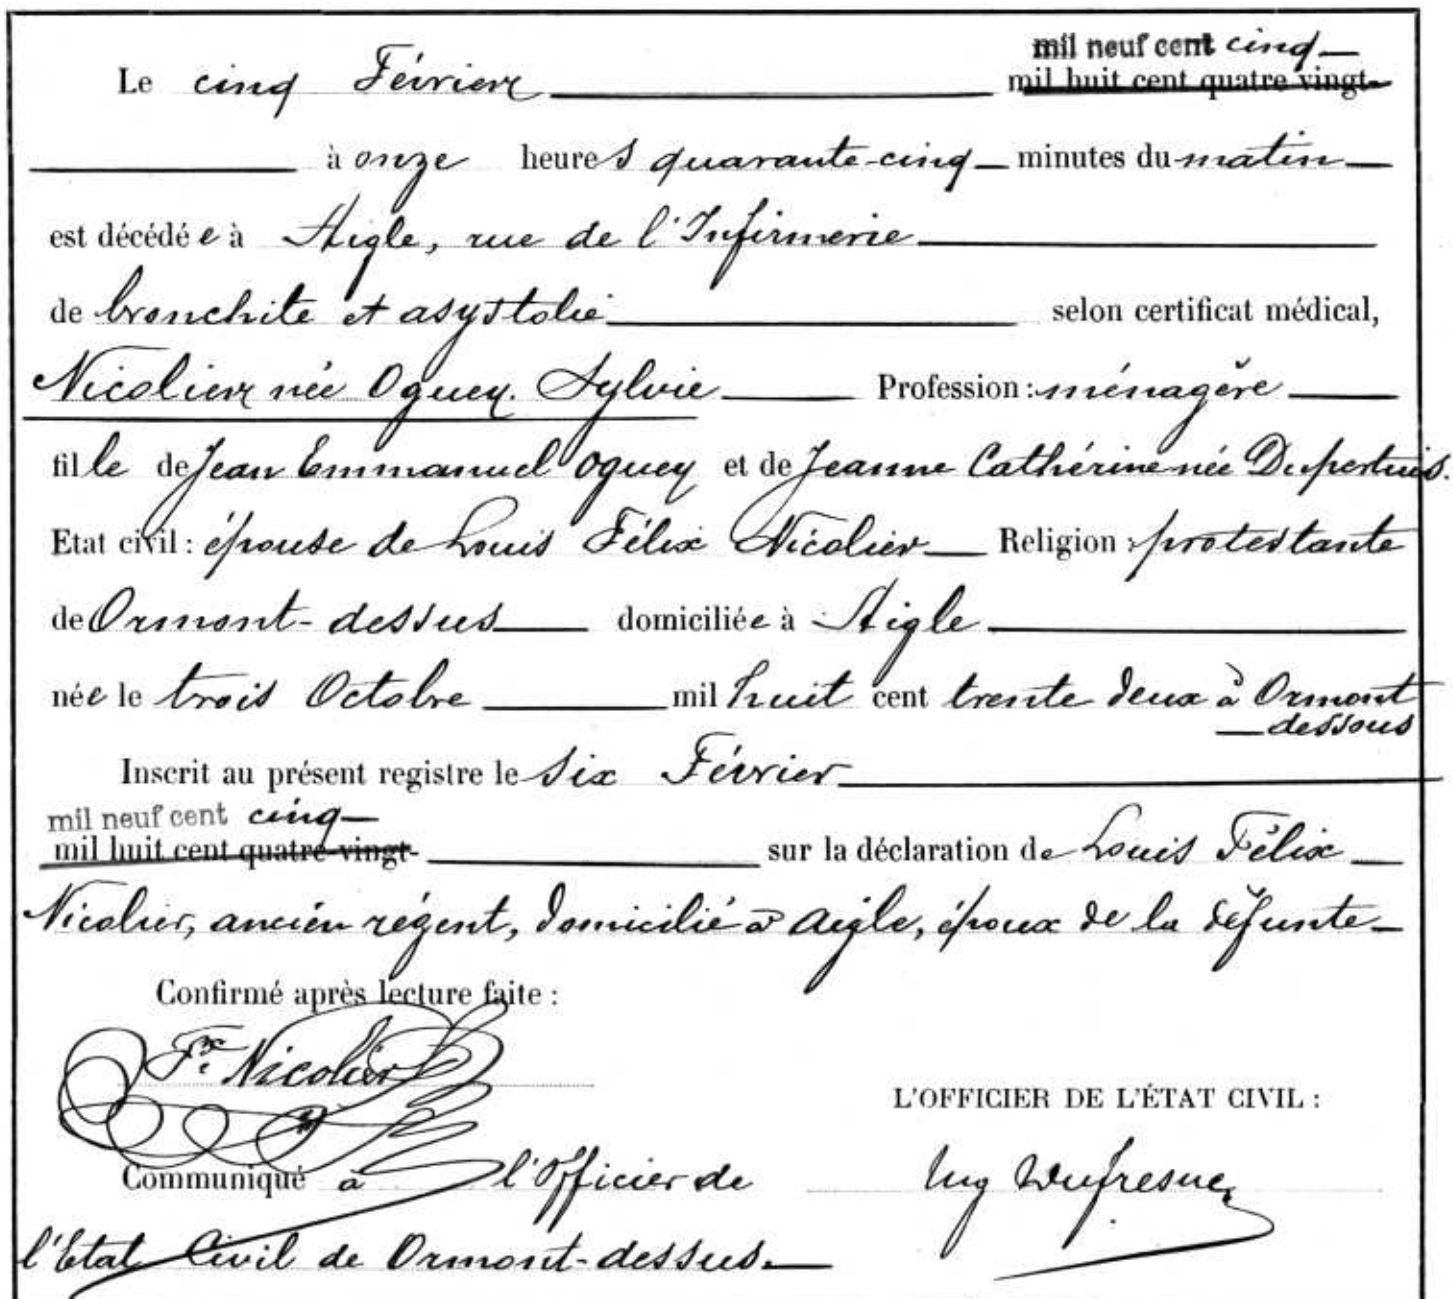 mil neuf cent cinq
Le cinq Février mil huit cent quatre vingt-
à onze heures quarante-cinq minutes du matin
est décédée à Aigle, rue de l'Infirmerie
de bronchite et asystolie selon certificat médical,
Nicolier née Oguey. Sylvie Profession : ménagère
fille de Jean Emmanuel Oguey et de Jeanne Cathérine née Dupertuis.
Etat civil : épouse de Louis Félix Nicolier Religion : protestante
de Ormont-dessus domiciliée à Aigle
née le trois Octobre mil huit cent trente deux à Ormont
dessous
Inscrit au présent registre le six Février
mil neuf cent cinq
mil huit cent quatre-vingt- sur la déclaration de Louis Félix
Nicolier, ancien régent, domicilié à Aigle, époux de la défunte
Confirmé après lecture faite :
Fx Nicolier
L'OFFICIER DE L'ÉTAT CIVIL :
Communiqué à l'Officier de
Dufresne
l'Etat Civil de Ormont-dessus.